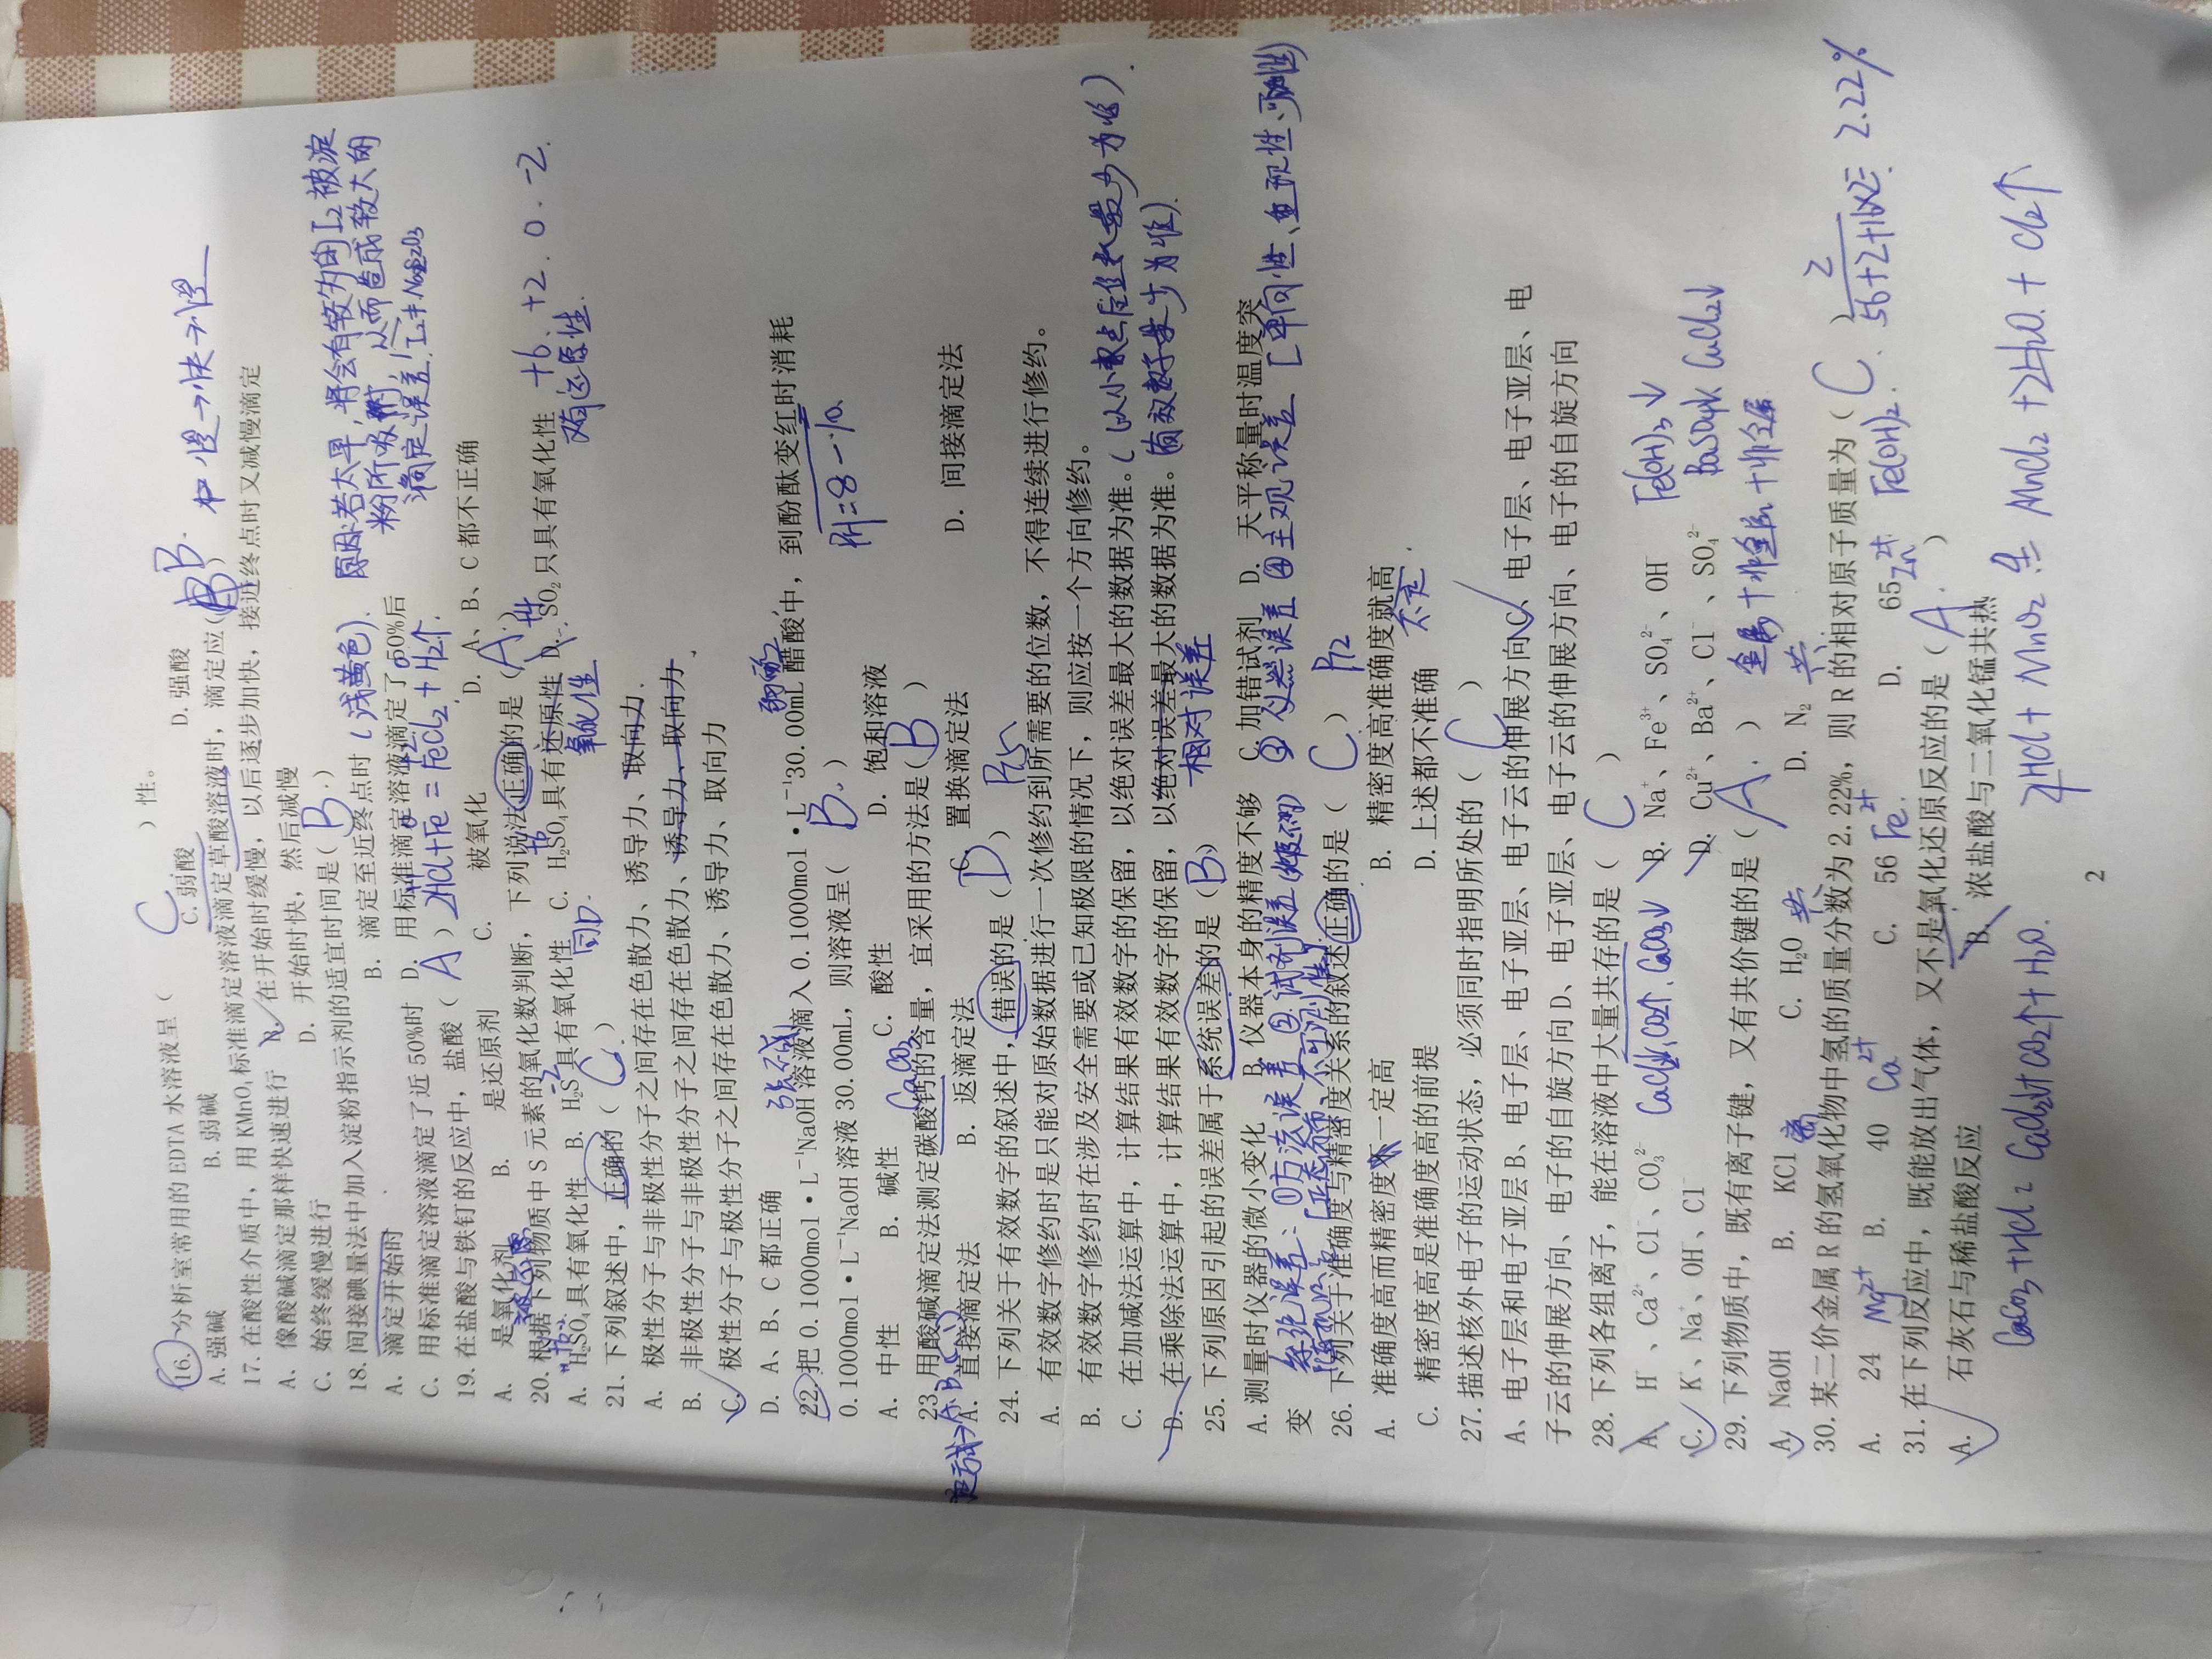 16. 分析室常用的 EDTA 水溶液呈（ C ）性。
A. 强碱 B. 弱碱 C. 弱酸 D. 强酸
17. 在酸性介质中，用 KMnO₄标准滴定溶液滴定草酸溶液时，滴定应（ B ） B. 慢→快→慢
A. 像酸碱滴定那样快速进行 B. 在开始时缓慢，以后逐步加快，接近终点时又减慢滴定
C. 始终缓慢进行 D. 开始时快，然后减慢
18. 间接碘量法中加入淀粉指示剂的适宜时间是（ B. ）
A. 滴定开始时 B. 滴定至近终点时（浅黄色）.
原因:若太早,将会有较多的I₂被淀
粉所吸附,从而造成较大的
滴定误差.
C. 用标准滴定溶液滴定了近 50%时 D. 用标准滴定溶液滴定了 50%后
19. 在盐酸与铁钉的反应中，盐酸（ A ） 2HCl+Fe=FeCl₂+H₂↑.
A. 是氧化剂 B. 是还原剂 C. 被氧化 D. A、B、C 都不正确
20. 根据下列物质中 S 元素的氧化数判断，下列说法正确的是（ A. ）
A. H₂SO₄具有氧化性 B. H₂S 具有氧化性 C. H₂SO₄具有还原性 D. SO₂只具有氧化性 +6. +2. 0. -2.
氧化性
21. 下列叙述中，正确的（ C. ）
A. 极性分子与非极性分子之间存在色散力、诱导力、取向力.
B. 非极性分子与非极性分子之间存在色散力、诱导力、取向力.
C. 极性分子与极性分子之间存在色散力、诱导力、取向力
D. A、B、C 都正确
22. 把 0.1000mol·L⁻¹NaOH 溶液滴入 0.1000mol·L⁻¹30.00mL 醋酸中，到酚酞变红时消耗
强碱
PH=8-10.
0.1000mol·L⁻¹NaOH 溶液 30.00mL，则溶液呈（ B. ）
A. 中性 B. 碱性 C. 酸性 D. 饱和溶液
CaCO₃
23. 用酸碱滴定法测定碳酸钙的含量，宜采用的方法是（ B ）
A. 直接滴定法 B. 返滴定法 C. 置换滴定法 D. 间接滴定法
24. 下列关于有效数字的叙述中，错误的是（ D ） P₂₅
A. 有效数字修约时是只能对原始数据进行一次修约到所需要的位数，不得连续进行修约。
B. 有效数字修约时在涉及安全需要或已知极限的情况下，则应按一个方向修约。
C. 在加减法运算中，计算结果有效数字的保留，以绝对误差最大的数据为准。（以小数点后位数最少为准）.
D. 在乘除法运算中，计算结果有效数字的保留，以绝对误差最大的数据为准。（有效数字最少为准）.
相对误差
25. 下列原因引起的误差属于系统误差的是（ B ）
A. 测量时仪器的微小变化 B. 仪器本身的精度不够 C. 加错试剂 D. 天平称量时温度突
变
系统误差: ①方法误差 ②试剂误差 ③仪器误差 ④主观误差 [单向性、重现性、可测性]
26. 下列关于准确度与精密度关系的叙述正确的是（ C. ） P₁₂
A. 准确度高而精密度不一定高 B. 精密度高准确度就高
不一定.
C. 精密度高是准确度高的前提 D. 上述都不准确
27. 描述核外电子的运动状态，必须同时指明所处的（ C ）
A、电子层和电子亚层 B、电子层、电子亚层、电子云的伸展方向 C、电子层、电子亚层、电
子云的伸展方向、电子的自旋方向 D、电子亚层、电子云的伸展方向、电子的自旋方向
28. 下列各组离子，能在溶液中大量共存的是（ C ）
A. H⁺、Ca²⁺、Cl⁻、CO₃²⁻ CO₂↑. CaCO₃↓ B. Na⁺、Fe³⁺、SO₄²⁻、OH⁻ Fe(OH)₃↓
C. K⁺、Na⁺、OH⁻、Cl⁻ D. Cu²⁺、Ba²⁺、Cl⁻、SO₄²⁻ BaSO₄↓ CuCl₂↓
29. 下列物质中，既有离子键，又有共价键的是（ A. ） 金属+非金属+非金属
A. NaOH B. KCl 离 C. H₂O 共 D. N₂ 共
30. 某二价金属 R 的氢氧化物中氢的质量分数为 2.22%，则 R 的相对原子质量为（ C ） 2/(56+2+16×2) = 2.22%
A. 24 Mg²⁺ B. 40 Ca²⁺ C. 56 Fe²⁺ D. 65 Zn²⁺ Fe(OH)₂.
31. 在下列反应中，既能放出气体，又不是氧化还原反应的是（ A. ）
A. 石灰石与稀盐酸反应 B. 浓盐酸与二氧化锰共热
CaCO₃+HCl = CaCl₂+CO₂↑+H₂O. 4HCl+MnO₂ = MnCl₂+2H₂O.+Cl₂↑
2